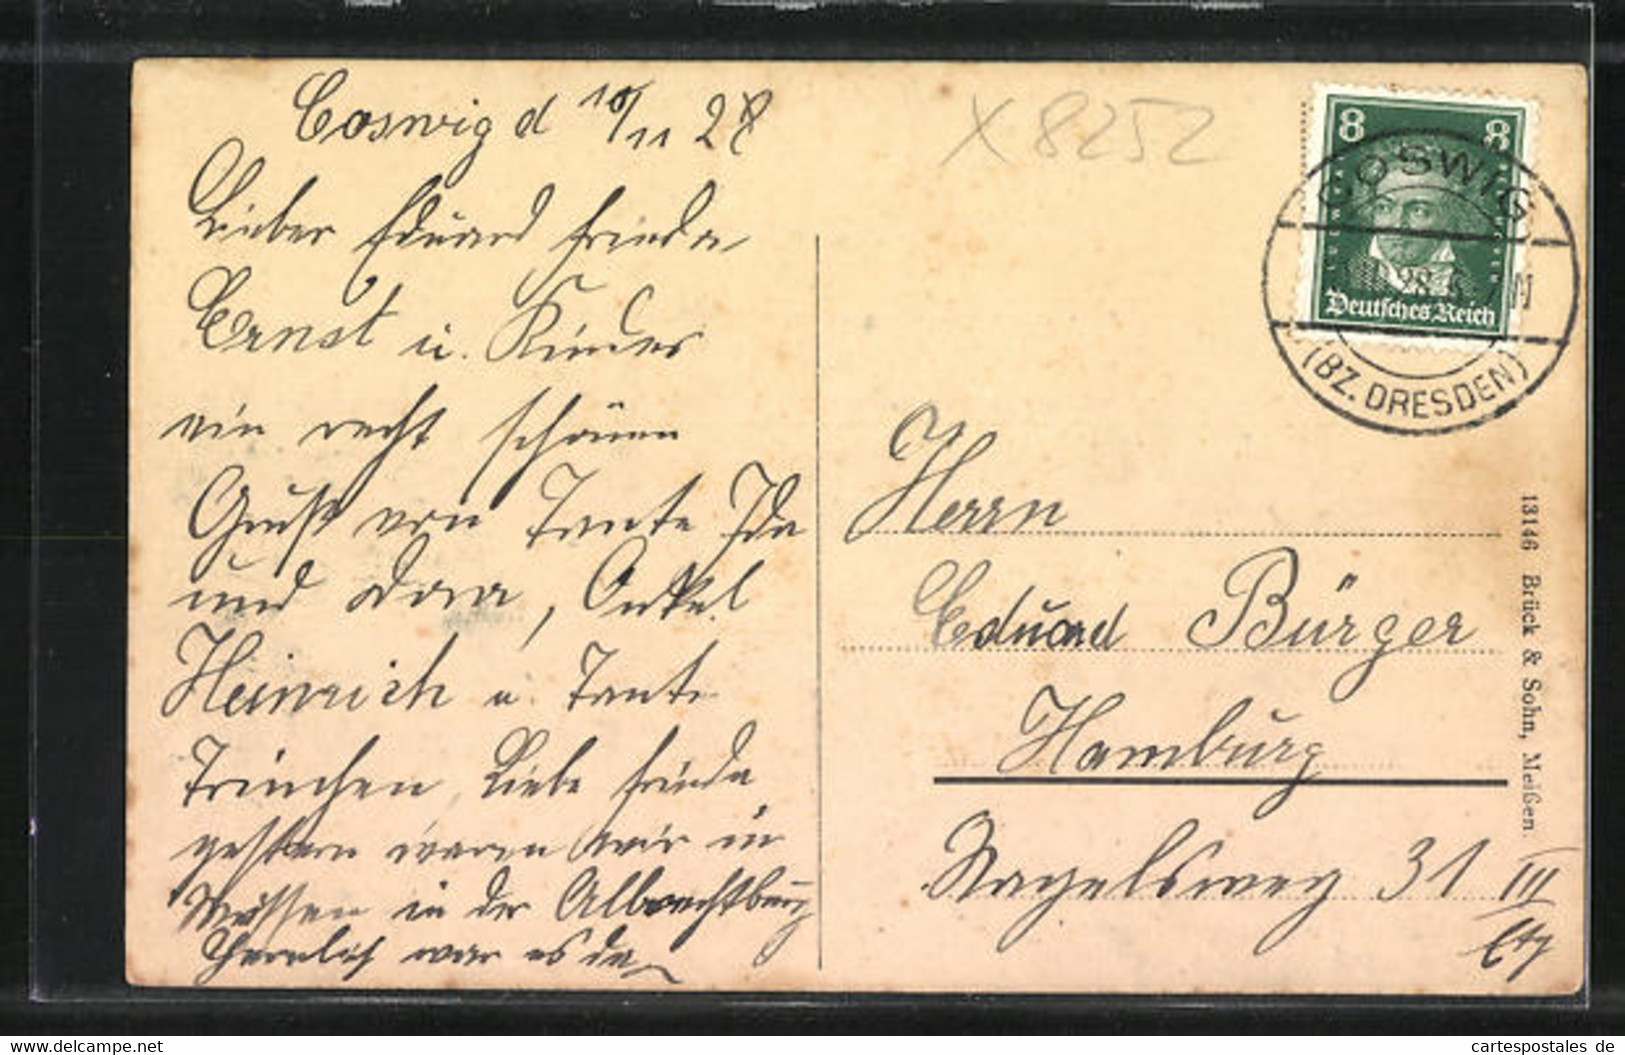 Coswig d 10/11 28
Lieber Eduard Frieda
Ernst u. Kinder
ein recht schönen
Gruß von Tante Ida
und Onkel
Heinrich u. Tante
Trinchen, Liebe Frieda
gestern waren wir in
Meissen in der Albrechtburg
Herrlich war es da
X 8252
8 8
Deutsches Reich
COSWIG
(BZ. DRESDEN)
Herrn
Eduard Bürger
Hamburg
Nagelsweg 31 III
Etg
13146 Brück & Sohn, Meißen.
www.cartespostales.com
cartespostales de